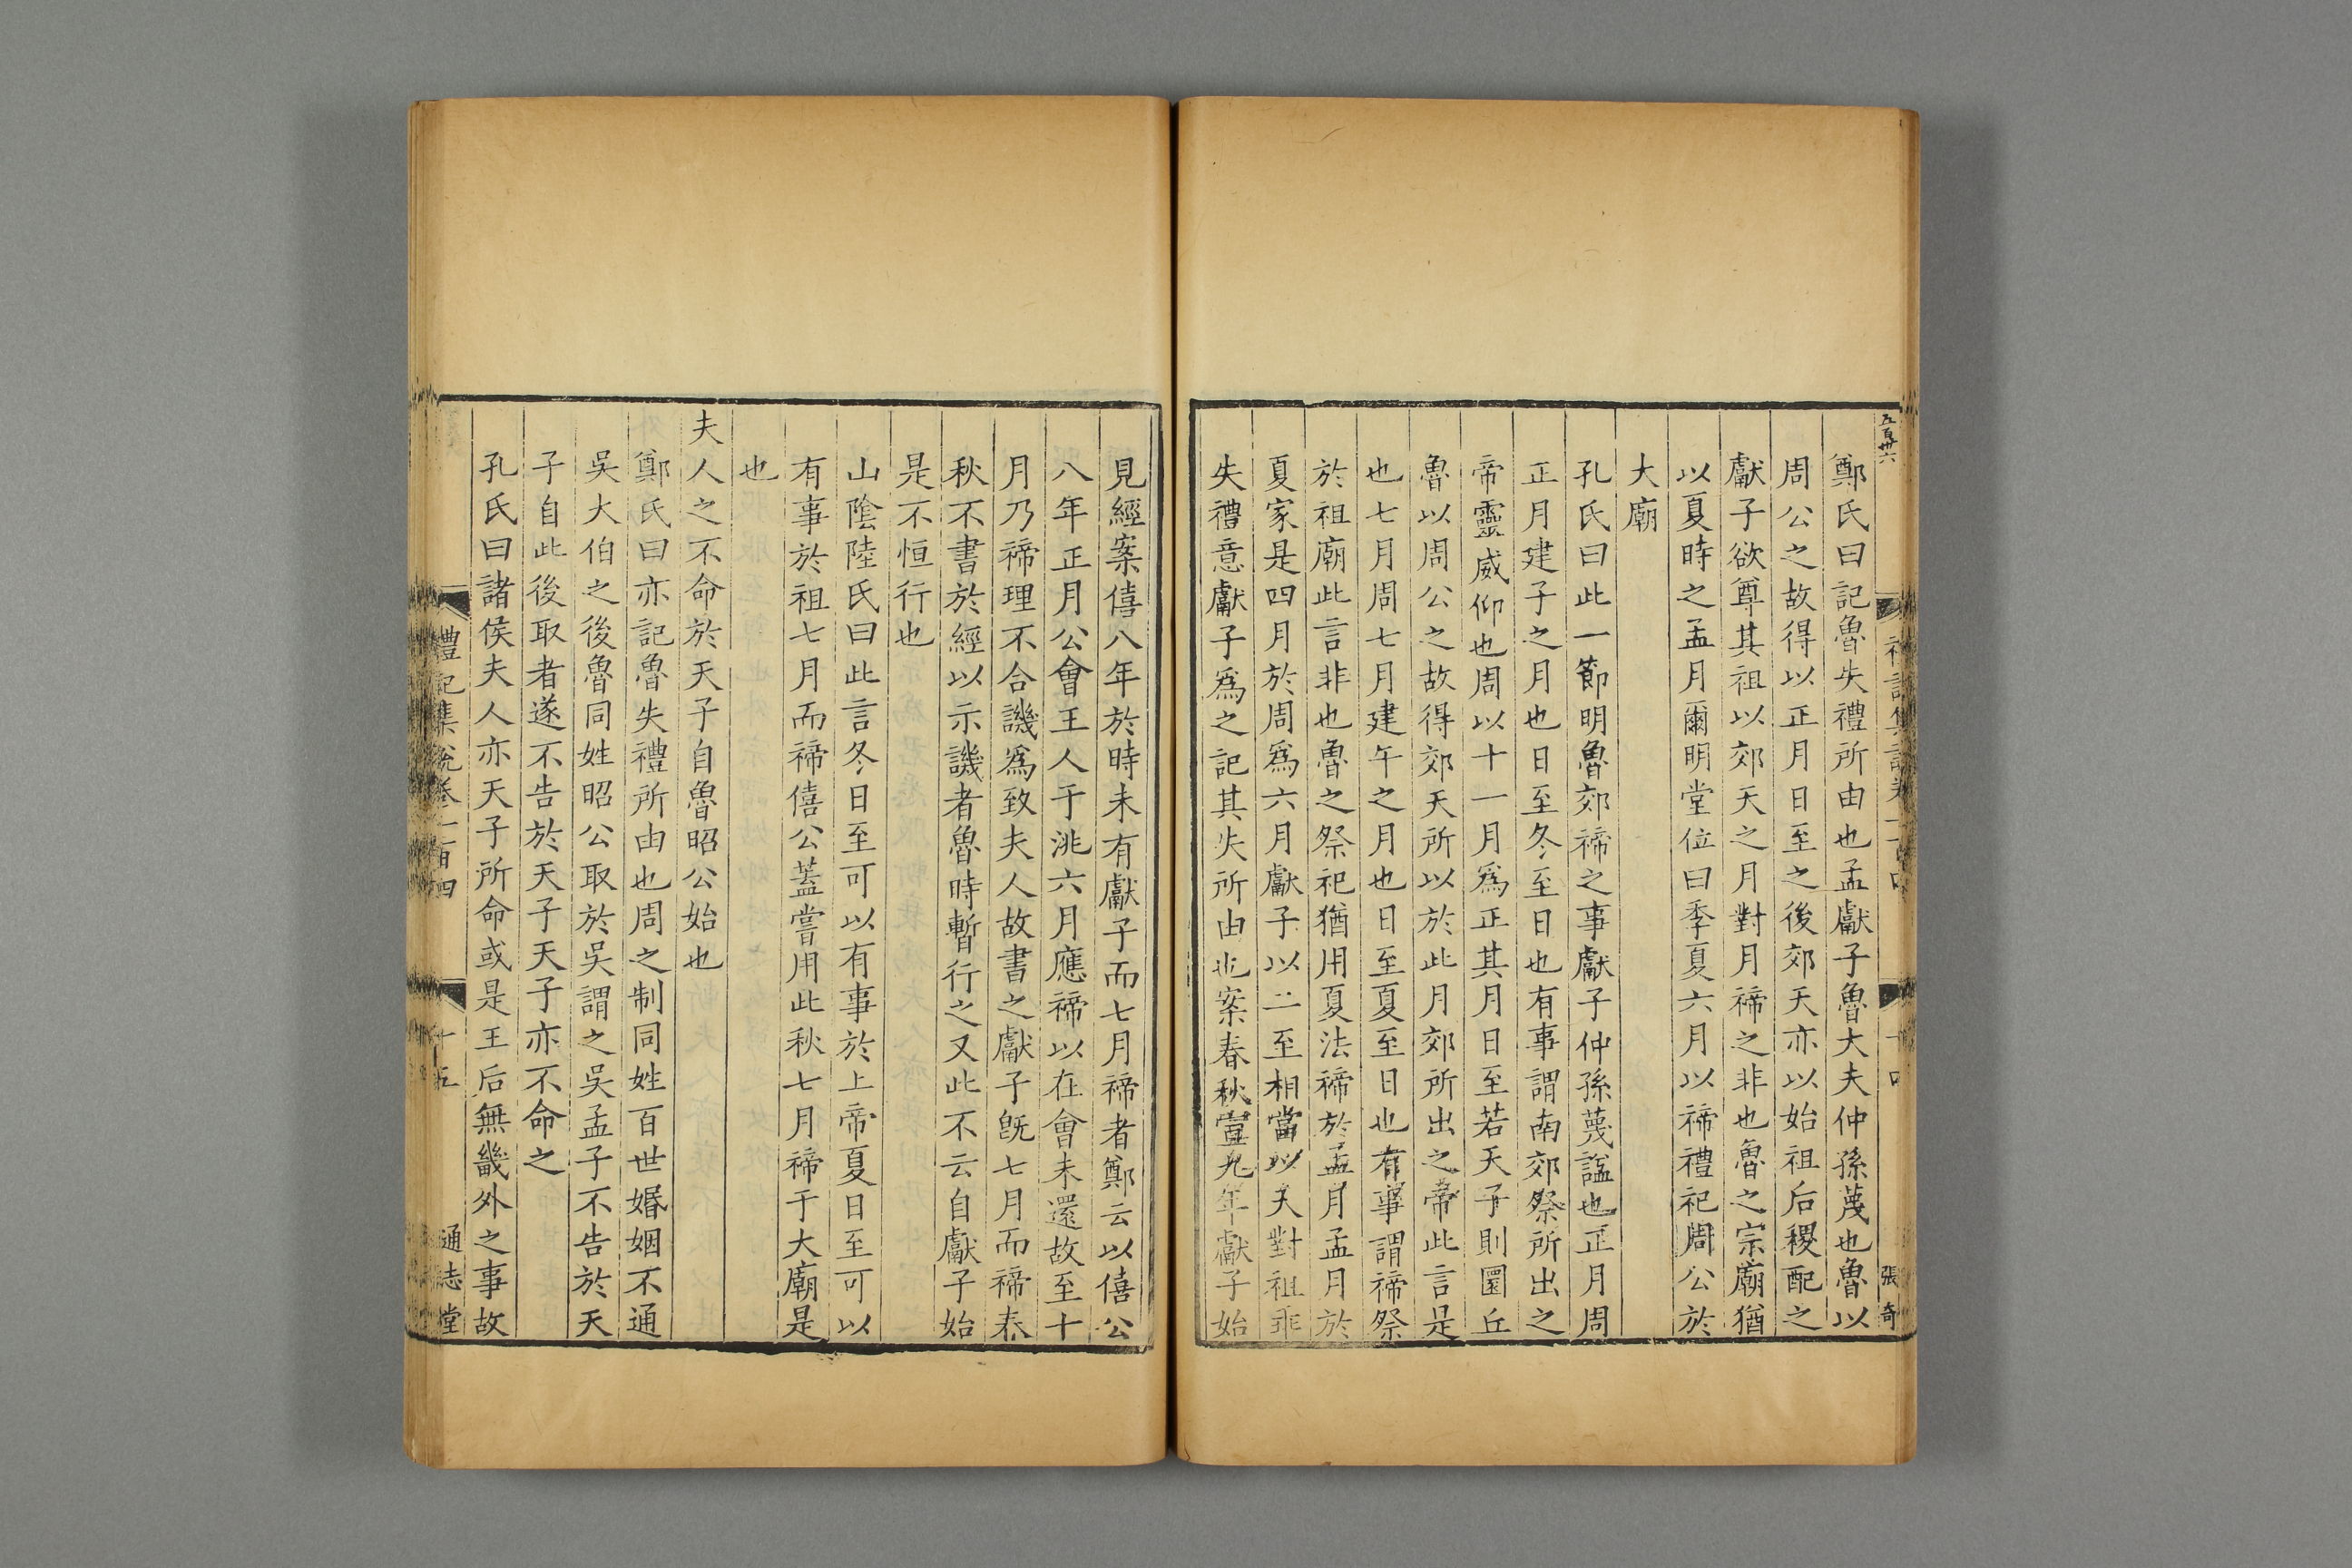 五百卅六
鄭氏曰記魯失禮所由也孟獻子魯大夫仲孫蔑也魯以
周公之故得以正月日至之後郊天亦以始祖后稷配之
獻子欲尊其祖以郊天之月對月禘之非也魯之宗廟猶
以夏時之孟月爾明堂位曰季夏六月以禘禮祀周公於
大廟
孔氏曰此一節明魯郊禘之事獻子仲孫蔑諡也正月周
正月建子之月也日至冬至日也有事謂南郊祭所出之
帝靈威仰也周以十一月爲正其月日至若天子則圜丘
魯以周公之故得郊天所以於此月郊所出之帝此言是
也七月周七月建午之月也日至夏至日也有事謂禘祭
於祖廟此言非也魯之祭祀猶用夏法禘於孟月孟月於
夏家是四月於周爲六月獻子以二至相當以天對祖乖
失禮意獻子爲之記其失所由也案春秋宣九年獻子始
張奇
見經案僖八年於時未有獻子而七月禘者鄭云以僖公
八年正月公會王人于洮六月應禘以在會未還故至十
月乃禘理不合譏爲致夫人故書之獻子旣七月而禘春
秋不書於經以示譏者魯時暫行之又此不云自獻子始
是不恒行也
山陰陸氏曰此言冬日至可以有事於上帝夏日至可以
有事於祖七月而禘僖公蓋嘗用此秋七月禘于大廟是
也
夫人之不命於天子自魯昭公始也
鄭氏曰亦記魯失禮所由也周之制同姓百世婚姻不通
吳大伯之後魯同姓昭公取於吳謂之吳孟子不告於天
子自此後取者遂不告於天子天子亦不命之
孔氏曰諸侯夫人亦天子所命或是王后無畿外之事故
禮記集說卷一百四 十五 通志堂